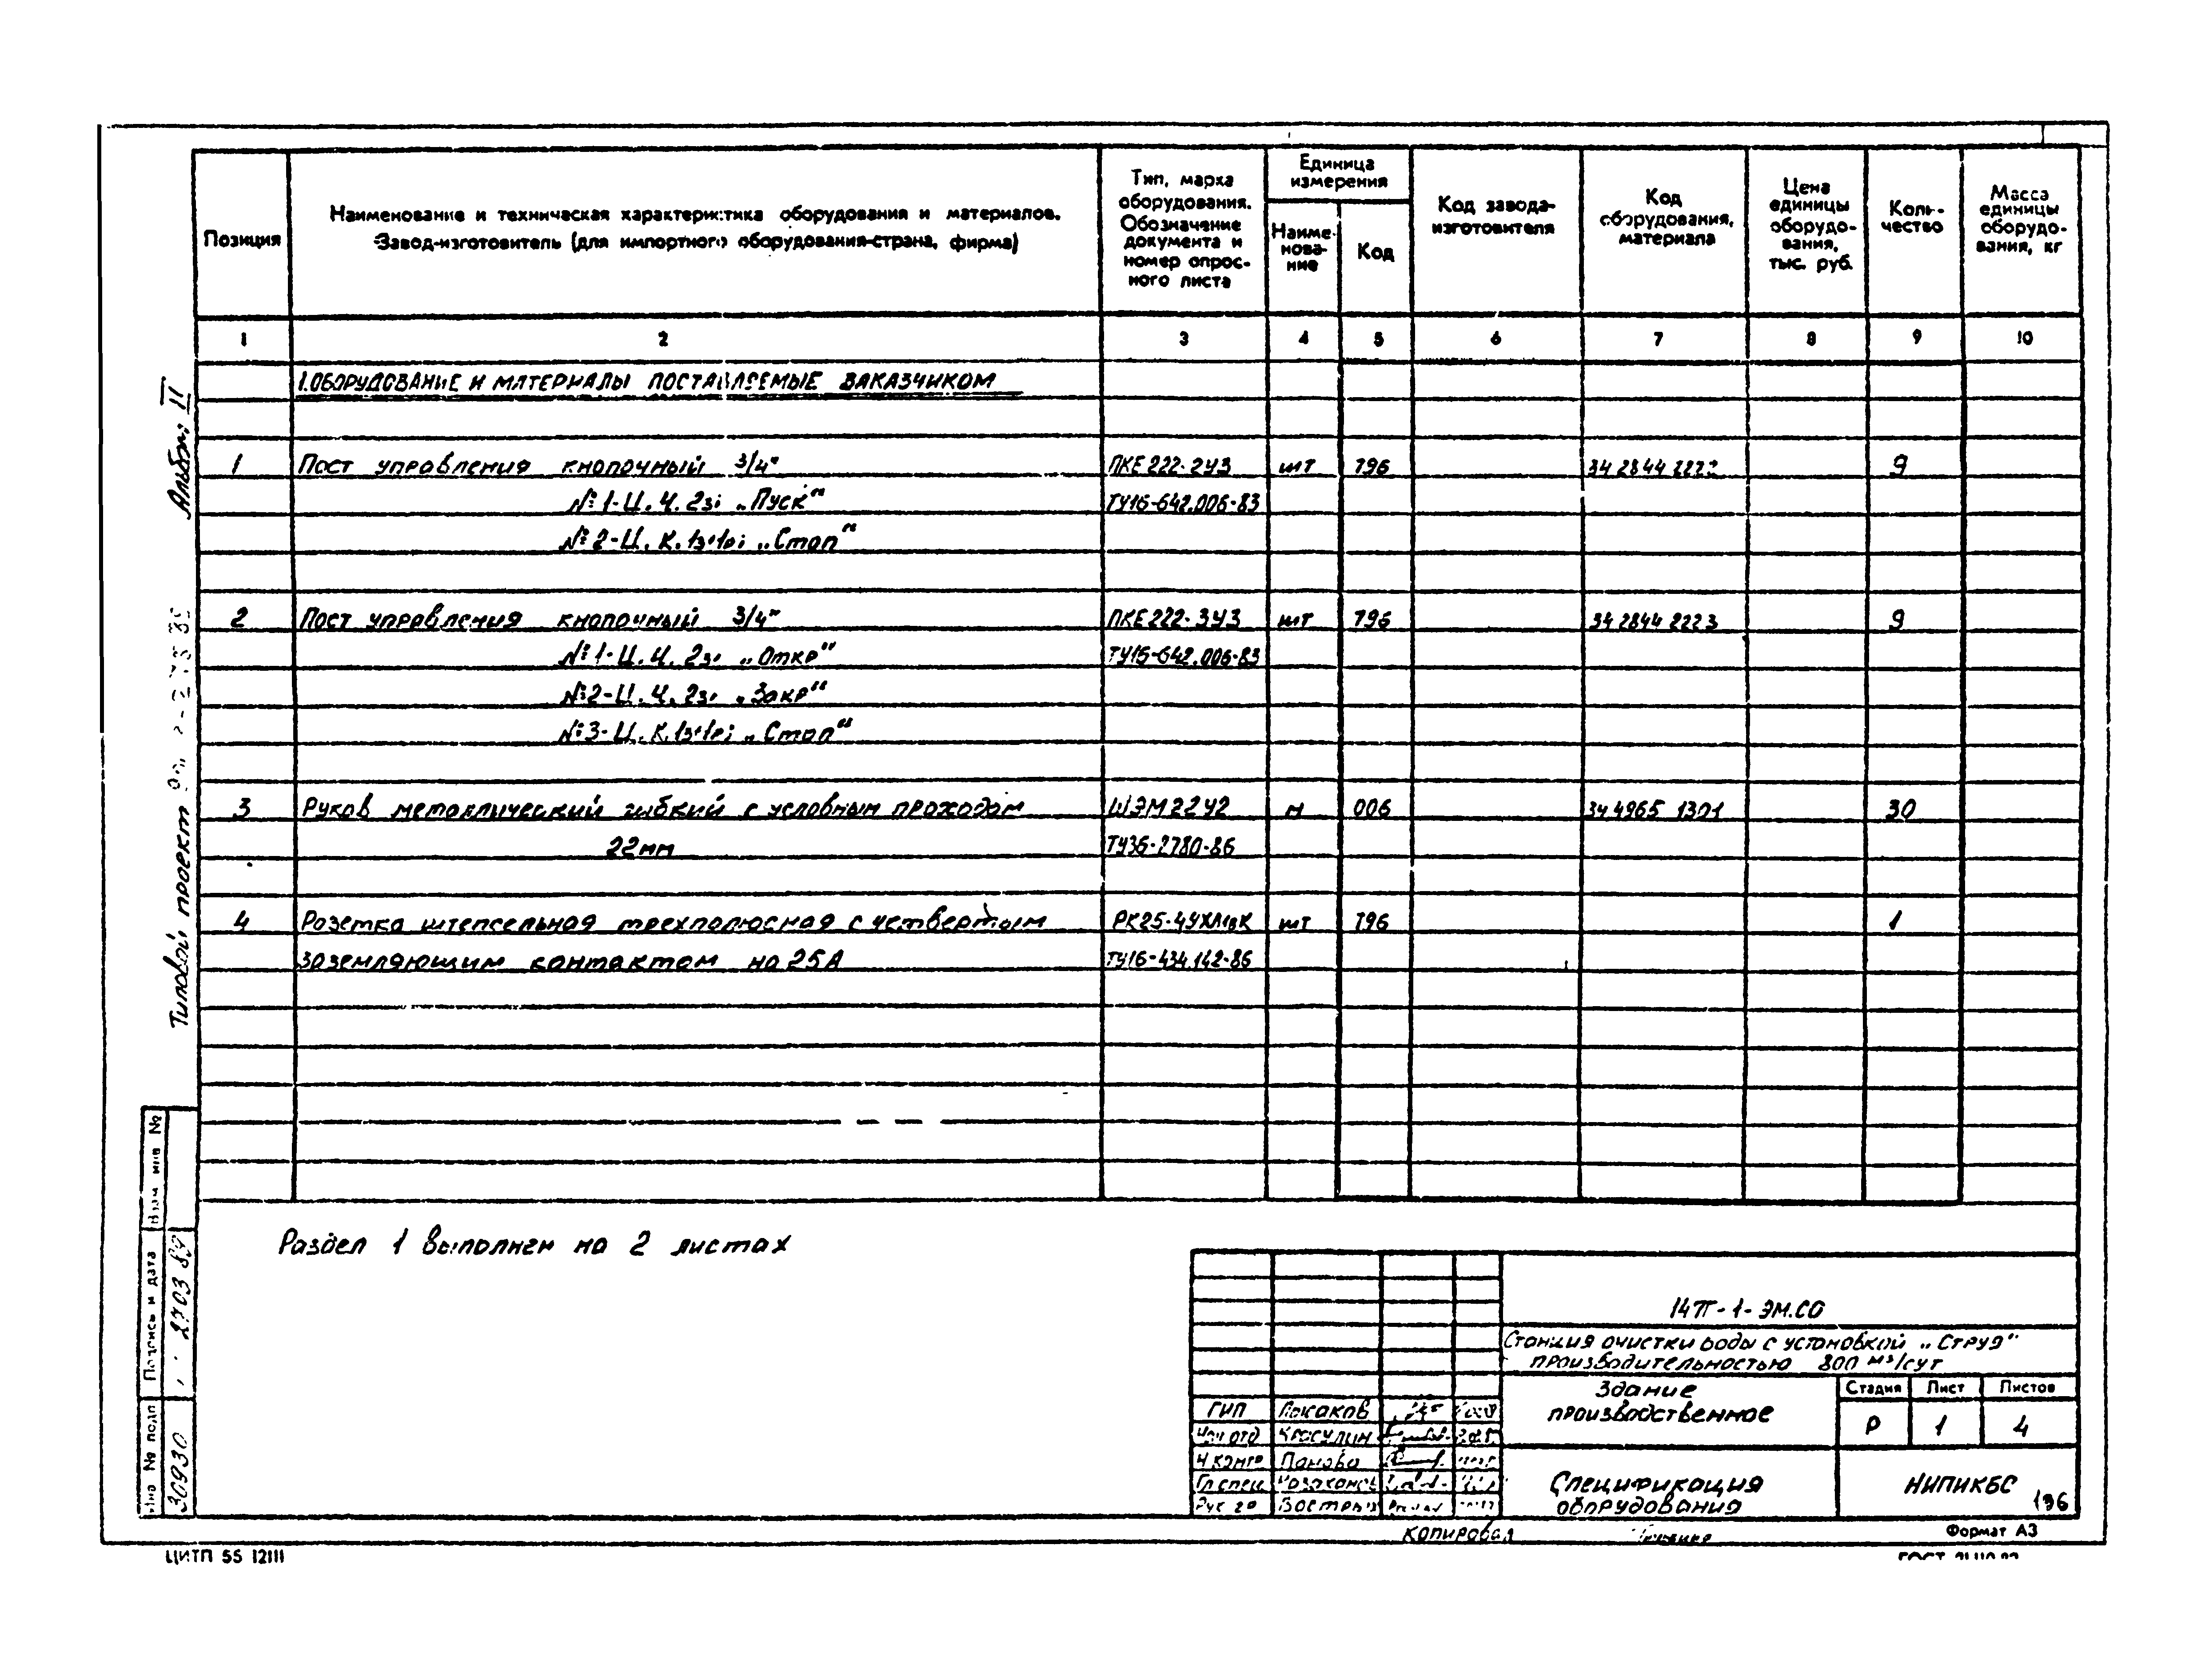 Позиция
Наименование и техническая характеристика оборудования и материалов.
Завод-изготовитель (для импортного оборудования-страна, фирма)
Тип, марка
оборудования.
Обозначение
документа и
номер опрос-
ного листа
Единица
измерения
Наиме-
нова-
ние
Код
Код завода-
изготовителя
Код
оборудования,
материала
Цена
единицы
оборудо-
вания,
тыс. руб.
Коли-
чество
Масса
единицы
оборудо-
вания, кг
1 2 3 4 5 6 7 8 9 10
1.ОБОРУДОВАНИЕ И МАТЕРИАЛЫ ПОСТАВЛЯЕМЫЕ ЗАКАЗЧИКОМ
1 Пост управления кнопочный 3/4" ПКЕ222-2У3 шт 796 34 2844 2222 9
№1-Ц. Ч. 2з; „Пуск" ТУ16-642.006-83
№2-Ц. К. 1з+1р; „Стоп"
2 Пост управления кнопочный 3/4" ПКЕ222-3У3 шт 796 34 2844 2223 9
№1-Ц. Ч. 2з; „Откр" ТУ16-642.006-83
№2-Ц. Ч. 2з; „Закр"
№3-Ц. К. 1з+1р; „Стоп"
3 Рукав металлический гибкий с условным проходом ШЭМ22У2 м 006 34 4965 1301 30
22мм ТУ36-2780-86
4 Розетка штепсельная трехполюсная с четвертым РК25-4УХЛ18К шт 796 1
заземляющим контактом на 25А ТУ16-434.142-86
Раздел 1 выполнен на 2 листах
Альбом II
Типовой проект
Взам инв №
Подпись и дата
2703 89
Инв № подл
30930
14П-1-ЭМ.СО
Станция очистки воды с установкой „Струя"
производительностью 800 м³/сут
Здание
производственное
Стадия Лист Листов
Р 1 4
ГИП
Нач отд Красулин
Н контр Панова
Гл спец
Рук гр
Спецификация
оборудования
НИПИКБС
196
Копировал
Формат А3
ЦИТП 55 12111
ГОСТ